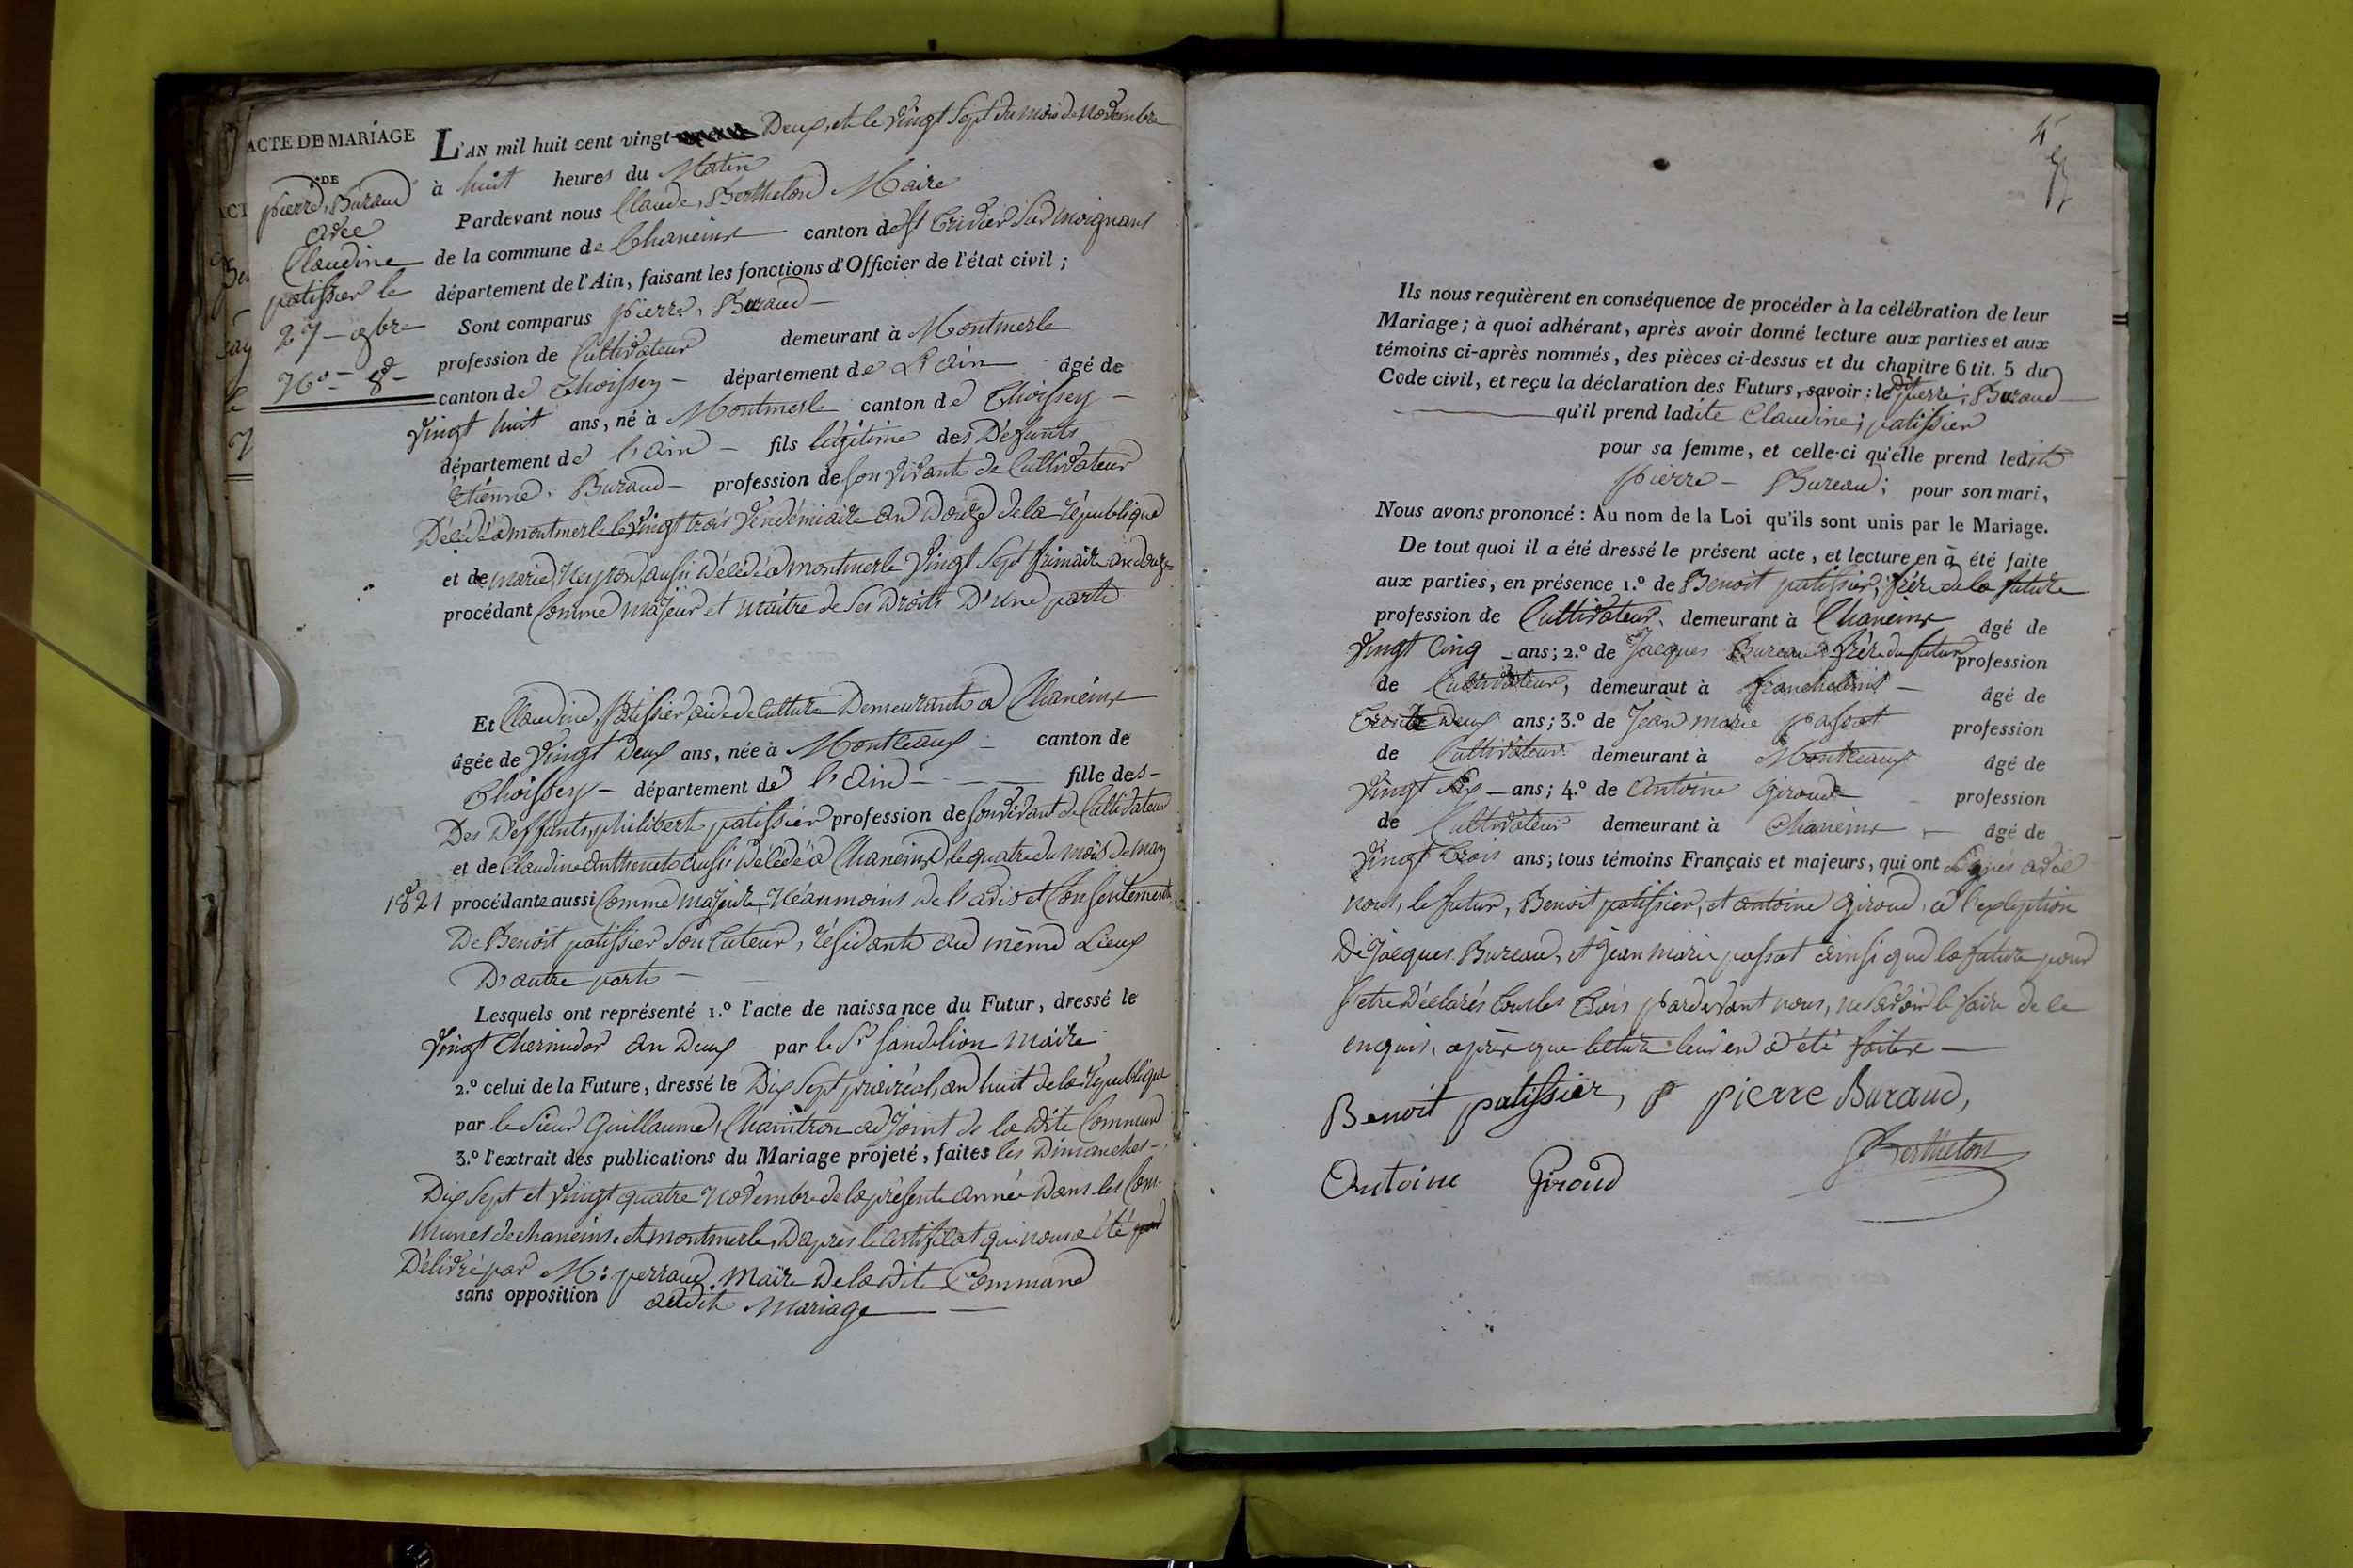 ACTE DE MARIAGE
DE
pierre, Buraud
avec
Claudine
patissier le
27 - 9bre
No - 8 -
L'AN mil huit cent vingt- Deux, et le vingt Sept du mois de novembre
à huit heures du Matin
Pardevant nous Claude, Berthelon Maire
de la commune de Chaneins canton de St trivier Sur moignans
département de l'Ain, faisant les fonctions d'Officier de l'état civil ;
Sont comparus pierre, Buraud -
profession de Cultivateur demeurant à Montmerle
canton de Thoissey - département de L'ain âgé de
vingt huit ans, né à Montmerle canton de Thoissey -
département de l'ain - fils légitime des Défunts
Etienne, Buraud - profession de Son vivant de Cultivateur
Décédé a montmerle le vingt trois vendémiaire an Douze de la république
et de marie Neyron, aussi Décédé a montmerle vingt Sept frimaire an douze
procédant Comme majeur et maitre de Ses Droits D'une parte
Et Claudine, Patissier aide de Culture Demeurante a Chaneins
âgée de vingt Deux ans, née à Montceaux - canton de
Thoissey - département de l'ain - fille des -
Des Deffunts, philibert patissier profession de Son vivant de Cultivateur
et de Claudine aussi Décédé a Chaneins le quatre du mois de may
1821 procédante aussi Comme majeure, Néanmoins de l'avis et Consentement
De Benoit patissier Son tuteur, résidante au même Lieux
D'autre parte -
Lesquels ont représenté 1.º l'acte de naissance du Futur, dressé le
vingt thermidor an Deux par le Sr Sandelion maire
2.º celui de la Future, dressé le Dix Sept prairéal, an huit de la république
par le Sieur Guillaume, Chaintron adjoint de la dite Commune
3.º l'extrait des publications du Mariage projeté, faites les Dimanches -
Dix Sept et vingt quatre Novembre de la présente année Dans les Com-
munes de chaneins, et montmerle, D'après le Certificat qui nous a été
Délivré par Mr perraud, Maire de la dite Commune
sans opposition audit Mariage
Ils nous requièrent en conséquence de procéder à la célébration de leur
Mariage ; à quoi adhérant, après avoir donné lecture aux parties et aux
témoins ci-après nommés, des pièces ci-dessus et du chapitre 6 tit. 5 du
Code civil, et reçu la déclaration des Futurs, savoir : le dit pierre, Buraud
qu'il prend ladite Claudine, patissier
pour sa femme, et celle-ci qu'elle prend ledit
pierre - Bureau ; pour son mari,
Nous avons prononcé : Au nom de la Loi qu'ils sont unis par le Mariage.
De tout quoi il a été dressé le présent acte, et lecture en à été faite
aux parties, en présence 1.º de Benoit patissier, frère de la future
profession de Cultivateur, demeurant à Chaneins âgé de
vingt Cinq - ans ; 2.º de Jacques Bureau frère du futur profession
de Cultivateur, demeuraut à francheleins - âgé de
trente Deux ans ; 3.º de Jean marie passot profession
de Cultivateur demeurant à Montceaux âgé de
vingt Six - ans ; 4.º de Antoine Giroud profession
de Cultivateur demeurant à Chaneins - âgé de
vingt trois ans ; tous témoins Français et majeurs, qui ont Signés avec
nous, le futur, Benoit patissier, et antoine Giroud, a l'exception
De Jacques, Bureau, et Jean marie passot ainsi que la future pour
S'etre Déclarés tous les trois pardevant nous, ne Savoir le faire de ce
enquis, après que lecture leur en a été faite -
Benoit patissier, pierre Buraud,
Antoine Giroud Berthelon